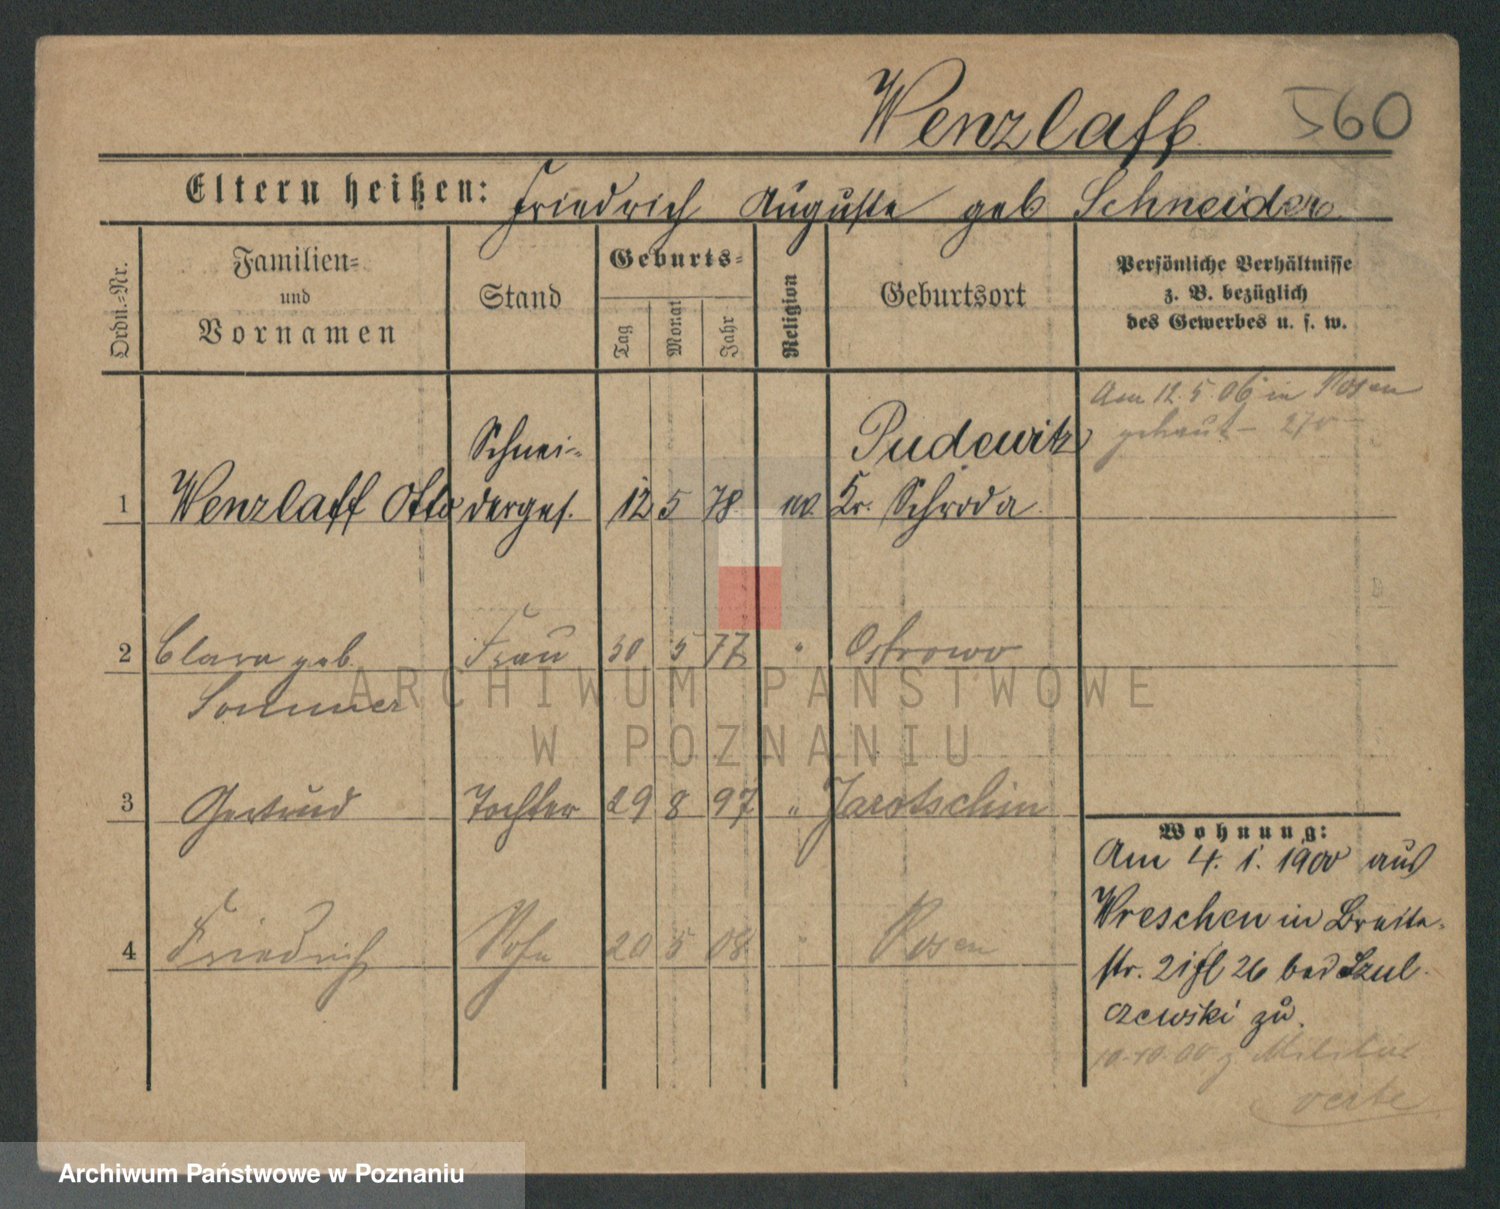 Wenzlaff 560
Eltern heißen: Friedrich Auguste geb Schneider
Ordn.-Nr.
Familien-
und
Vornamen
Stand
Geburts-
Tag
Monat
Jahr
Religion
Geburtsort
Persönliche Verhältnisse
z. B. bezüglich
des Gewerbes u. s. w.
Am 12.5.06 in Posen
getraut
Schnei-
Pudewitz
1 Wenzlaff Otto derges. 12 5 78 ev. Kr. Schroda
2 Clara geb. Frau 30 5 77 " Ostrowo
Sommer
3 Gertrud Tochter 29 8 97 " Jarotschin
4 Friedrich Sohn 20 5 08 " Posen
Wohnung:
Am 4. 1. 1900 aus
Wreschen in Breite-
str. 26 bei Szul-
czewski zu.
10.10.00 z Militär
verte
ARCHIWUM PAŃSTWOWE
W POZNANIU
Archiwum Państwowe w Poznaniu